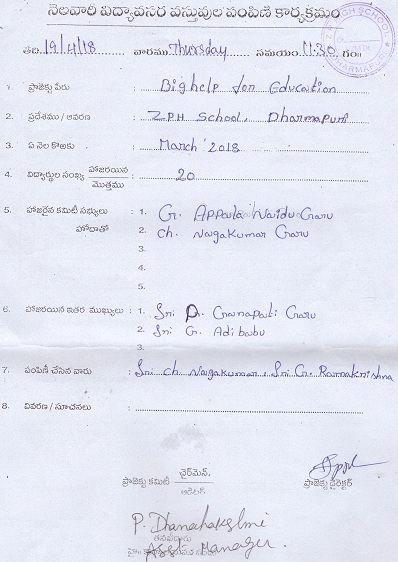 నెలవారి విద్యావసర వస్తువుల పంపిణి కార్యక్రమం
తేది. 19/4/18 వారము Thursday సమయం. 11.30 గం॥
1. ప్రాజెక్టు పేరు : Bighelp for Education
2. ప్రదేశము / ఆవరణ : Z.P.H School, Dharmapuri
3. ఏ నెల కొఱకు : March '2018
4. విద్యార్థుల సంఖ్య హాజరయిన / మొత్తము : 20
5. హాజరైన కమిటీ సభ్యులు : 1. G. Appala Naidu Garu
హోదాతో 2. Ch. Nagakumar Garu
3.
4.
5.
6. హాజరయిన ఇతర ముఖ్యులు : 1. Sri D. Ganapati Garu
2. Sri G. Adibabu
3.
7. పంపిణీ చేసిన వారు : Sri Ch Nagakumar, Sri G. Ramakrishna
8. వివరణ / సూచనలు :
ప్రాజెక్టు కమిటీ చైర్‌మెన్. / ఆడిటర్ ప్రాజెక్టు డైరెక్టర్
P. Dhanalakshmi
Asst Manager.